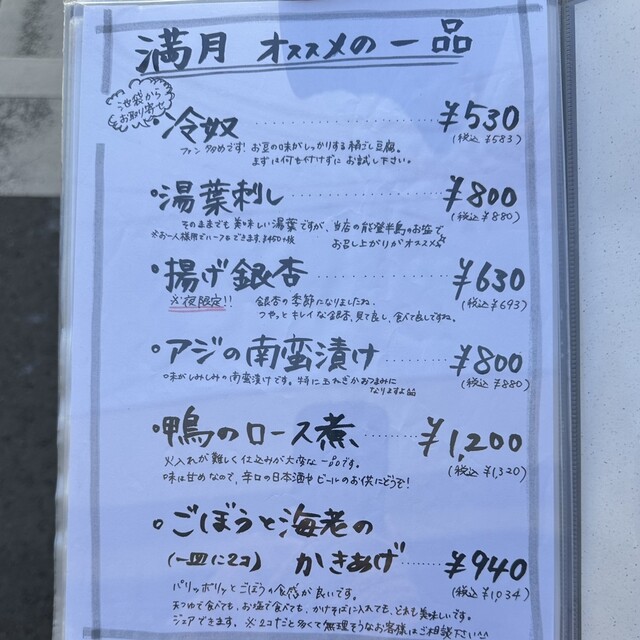 満月 オススメの一品
池袋から
お取り寄せ
・冷奴 ¥530
(税込 ¥583)
ファン多めです! お豆の味がしっかりする絹ごし豆腐。
まずは何も付けずにお試し下さい。
・湯葉刺し ¥800
(税込 ¥880)
そのままでも美味しい湯葉ですが、当店の能登半島のお塩で、
お召し上がりがオススメ☆
※お一人様用でハーフもできます。¥450+税
・揚げ銀杏 ¥630
(税込 ¥693)
※夜限定!! 銀杏の季節になりましたね。
つやっとキレイな銀杏、見て良し、食べて良しですね。
・アジの南蛮漬け ¥800
(税込 ¥880)
味がしみしみの南蛮漬けです。特に玉ねぎがおつまみに
なりますよ
・鴨のロース煮 ¥1,200
(税込 ¥1,320)
火入れが難しく仕込みが大変な一品です。
味は甘めなので、辛口の日本酒やビールのお供にどうぞ!
・ごぼうと海老の
(一皿に2コ) かきあげ ¥940
(税込 ¥1,034)
パリッボリッとごぼうの食感が良いです。
天つゆで食べても、お塩で食べても、かけそばに入れても、どれも美味しいです。
シェアできます。※2コだと多くて無理そうなお客様はご相談下さい^^